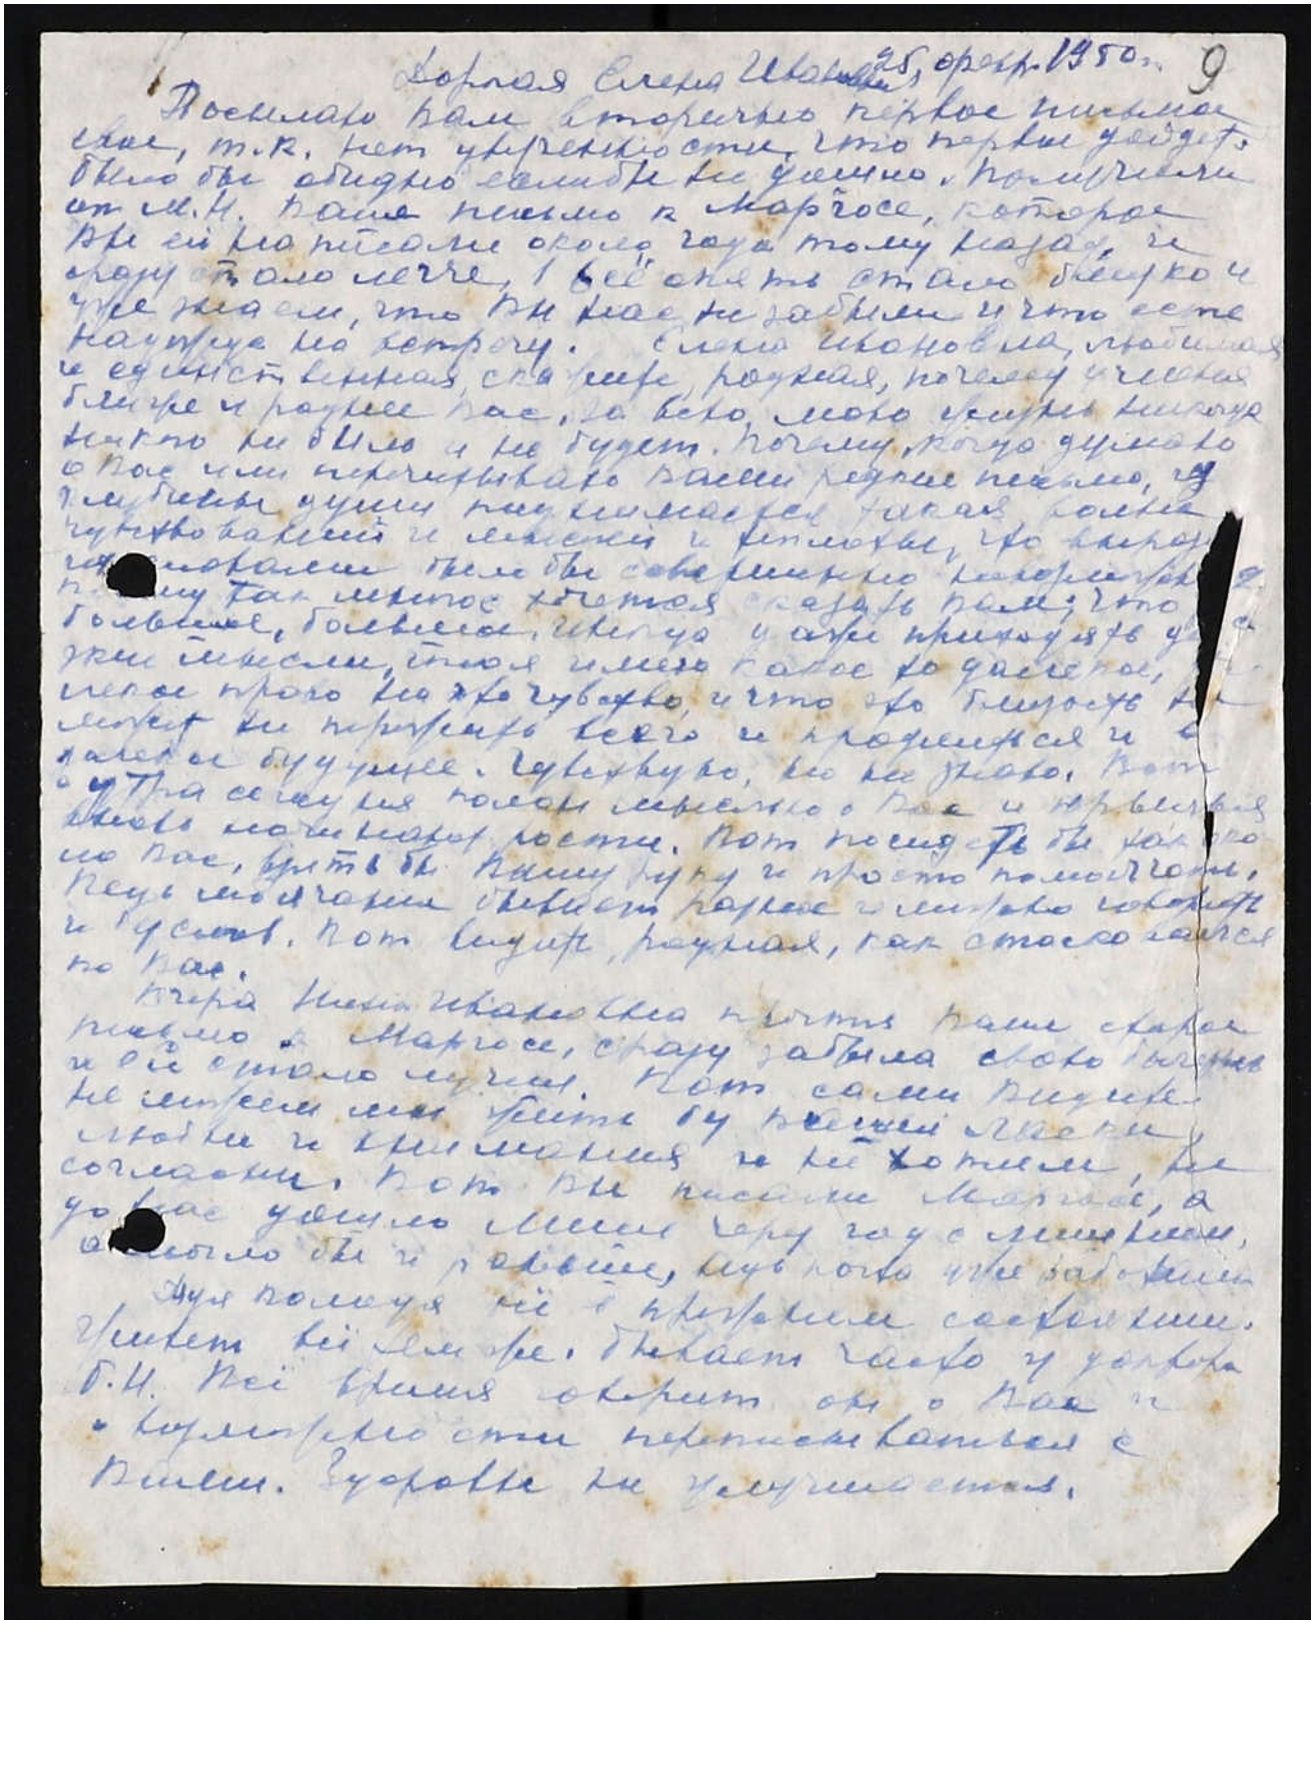 25, февр. 1950 г. 9
Дорогая Елена Ивановна
Посылаю Вам вторично первое письмо
свое, т.к. нет уверенности, что первое дойдет.
Было бы обидно если бы не дошло. Получили
от М.Н. Ваше письмо к Маргосе, которое
Вы ей написали около года тому назад, и
сразу стало легче, всё опять стало близко и
уже знаем, что Вы нас не забыли и что есть
надежда на встречу. Елена Ивановна, любимая
и единственная, скажите, родная, почему у меня
ближе и роднее Вас, за всю мою жизнь никогда
никого не было и не будет. Почему, когда думаю
о Вас или перечитываю Ваши редкие письма, из
глубины души поднимается такая волна
чувствований и мыслей и теплоты, что выраз
их словами было бы совершенно невозможно
почему так многое хочется сказать Вам, что
большое, большое, иногда даже приходят
мысли, что я имею какое то далекое,
право на это чувство, и что эта близость не
может не пережить всего и продлиться и в
далекое будущее. Чувствую, но не знаю. Вот
с утра сегодня полон мыслью о Вас и
вновь начинают расти. Вот посидеть бы так око
ло Вас, взять бы Вашу руку и просто помолчать.
Ведь молчание бывает разное и можно говорить
и без слов. Вот видите, родная, как стосковался
по Вас.
Вчера Нина Ивановна прочтя Ваше старое
письмо к Маргосе, сразу забыла свою болезнь
и ей стало лучше. Вот сами видите
не можем мы жить без Вашей ласки,
любви и внимания и не хотим, не
согласны. Вот Вы писали Маргосе, а
до нас дошло лишь через год с лишним,
а могло бы и раньше, ведь почта уже работает
Дядя Володя всё в прежнем состоянии.
Живет всё там же. Бывает часто у доктора
Б.Н. Всё время говорит он о Вас и
о возможности переписываться с
Вами. Здоровье не улучшается.